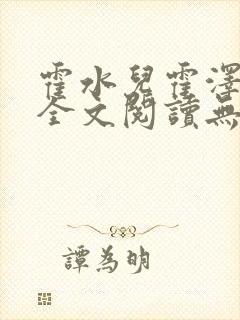 霍水兒霍澤
全文閱讀無
譚為明